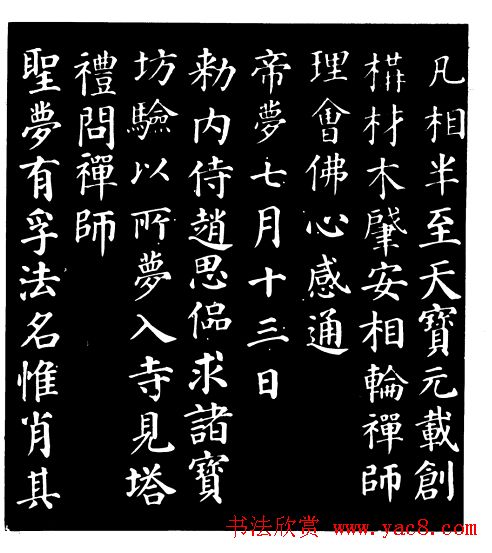 凡相半至天寶元載創
構材木肇安相輪禪師
理會佛心感通
帝夢七月十三日
勑内侍趙思偘求諸寶
坊驗以所夢入寺見塔
禮問禪師
聖夢有孚法名惟肖其
书法欣赏 www.yac8.com